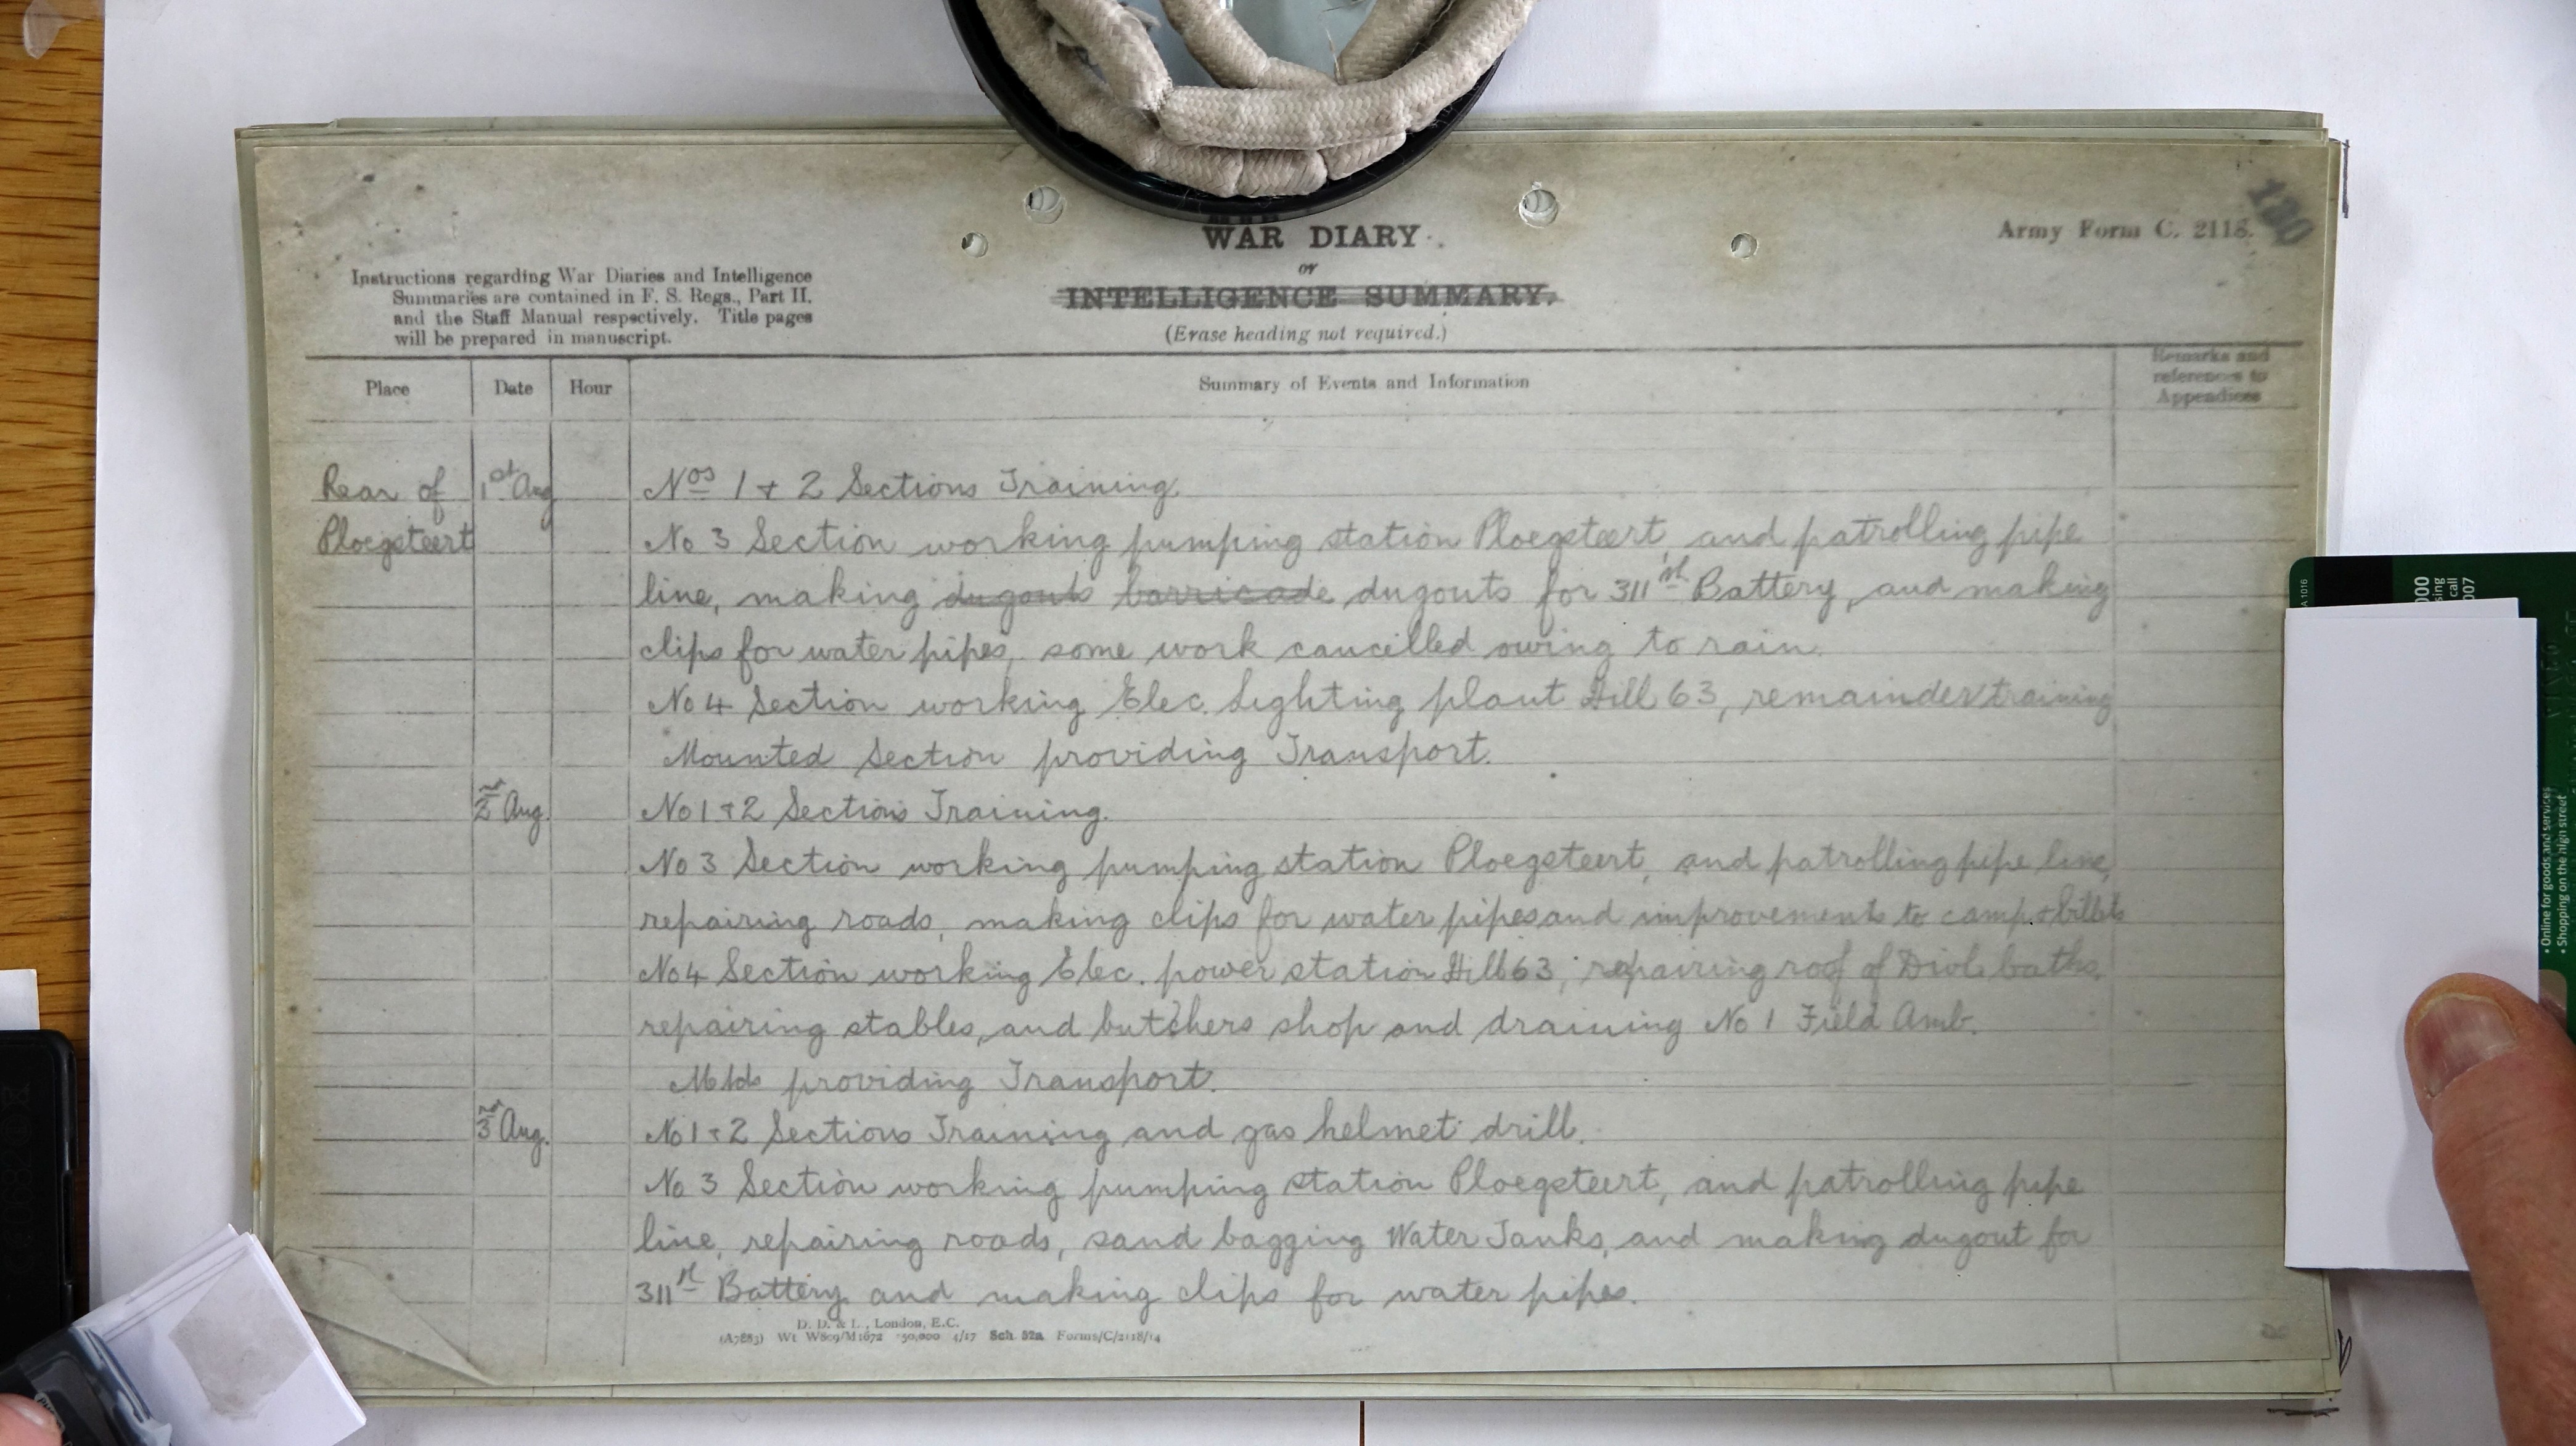 WAR DIARY
or
INTELLIGENCE SUMMARY.
(Erase heading not required.)
Army Form C. 2118.
130
Instructions regarding War Diaries and Intelligence
Summaries are contained in F. S. Regs., Part II.
and the Staff Manual respectively. Title pages
will be prepared in manuscript.
Place Date Hour Summary of Events and Information
Remarks and
references to
Appendices
Rear of 1st Aug Nos 1 + 2 Sections Training.
Ploegsteert No 3 Section working pumping station Ploegsteert, and patrolling pipe
line, making dugouts barricade dugouts for 311st Battery, and making
clips for water pipes, some work cancilled owing to rain.
No 4 Section working Elec. Lighting plant Hill 63, remainder training
Mounted Section providing Transport.
2nd Aug. No 1 + 2 Sections Training.
No 3 Section working pumping station Ploegsteert, and patrolling pipe line,
repairing roads, making clips for water pipes and improvements to camp + billets
No 4 Section working Elec. power station Hill 63, repairing roof of Divl. baths,
repairing stables, and butchers shop and draining No 1 Field Amb.
Mtd providing Transport.
3rd Aug. No 1 + 2 Sections Training and gas helmet drill.
No 3 Section working pumping station Ploegsteert, and patrolling pipe
line, repairing roads, sand bagging Water Tanks, and making dugout for
311st Battery and making clips for water pipes.
D. D. & L., London, E.C.
(A7883) Wt W809/M1672 350,000 4/17 Sch. 52a Forms/C/2118/14
• Online for goods and services
• Shopping on the high street